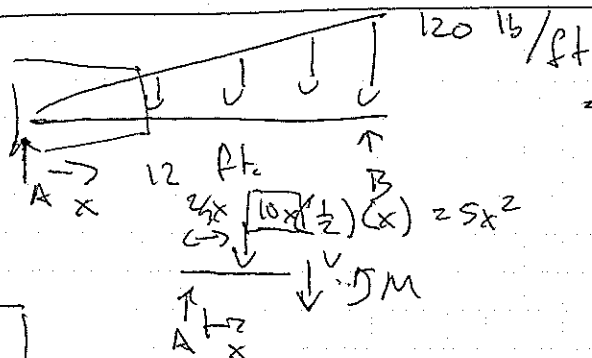 120 lb/ft
12 ft.
A x B
2/3x 10x(1/2)(x) = 5x²
V M
A x